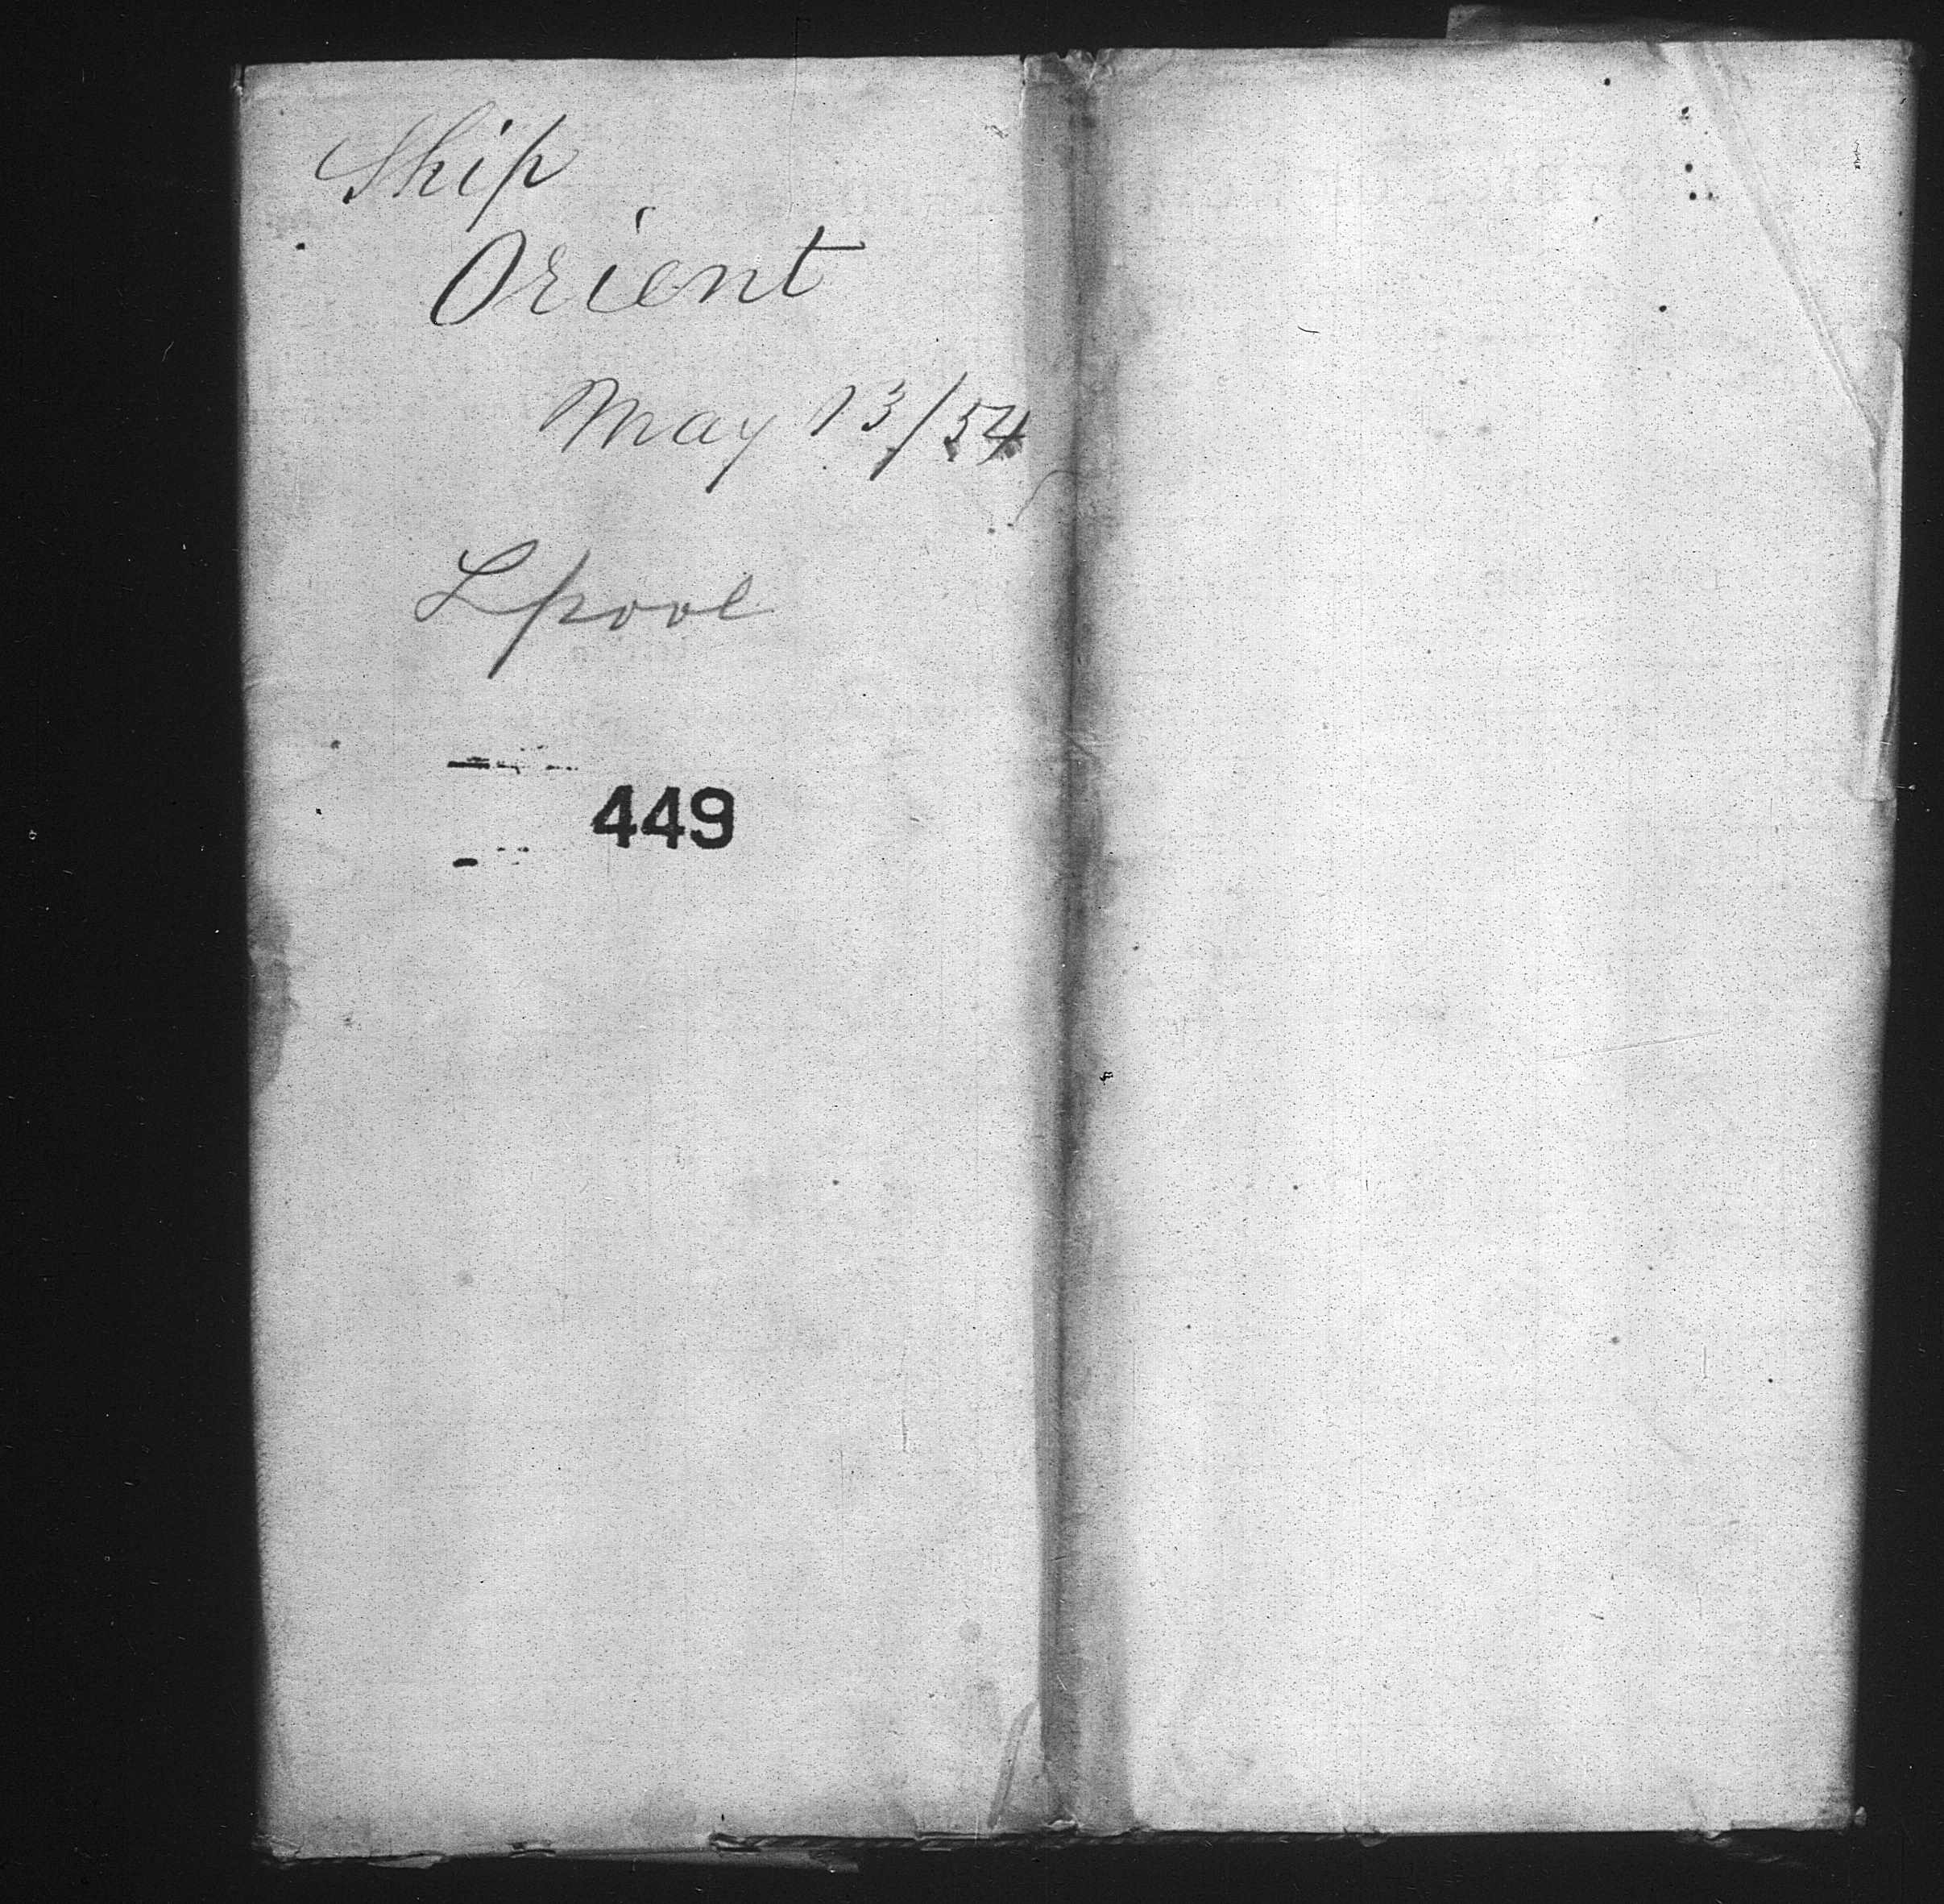 Ship
Orient
May 13/54
Lpool
449